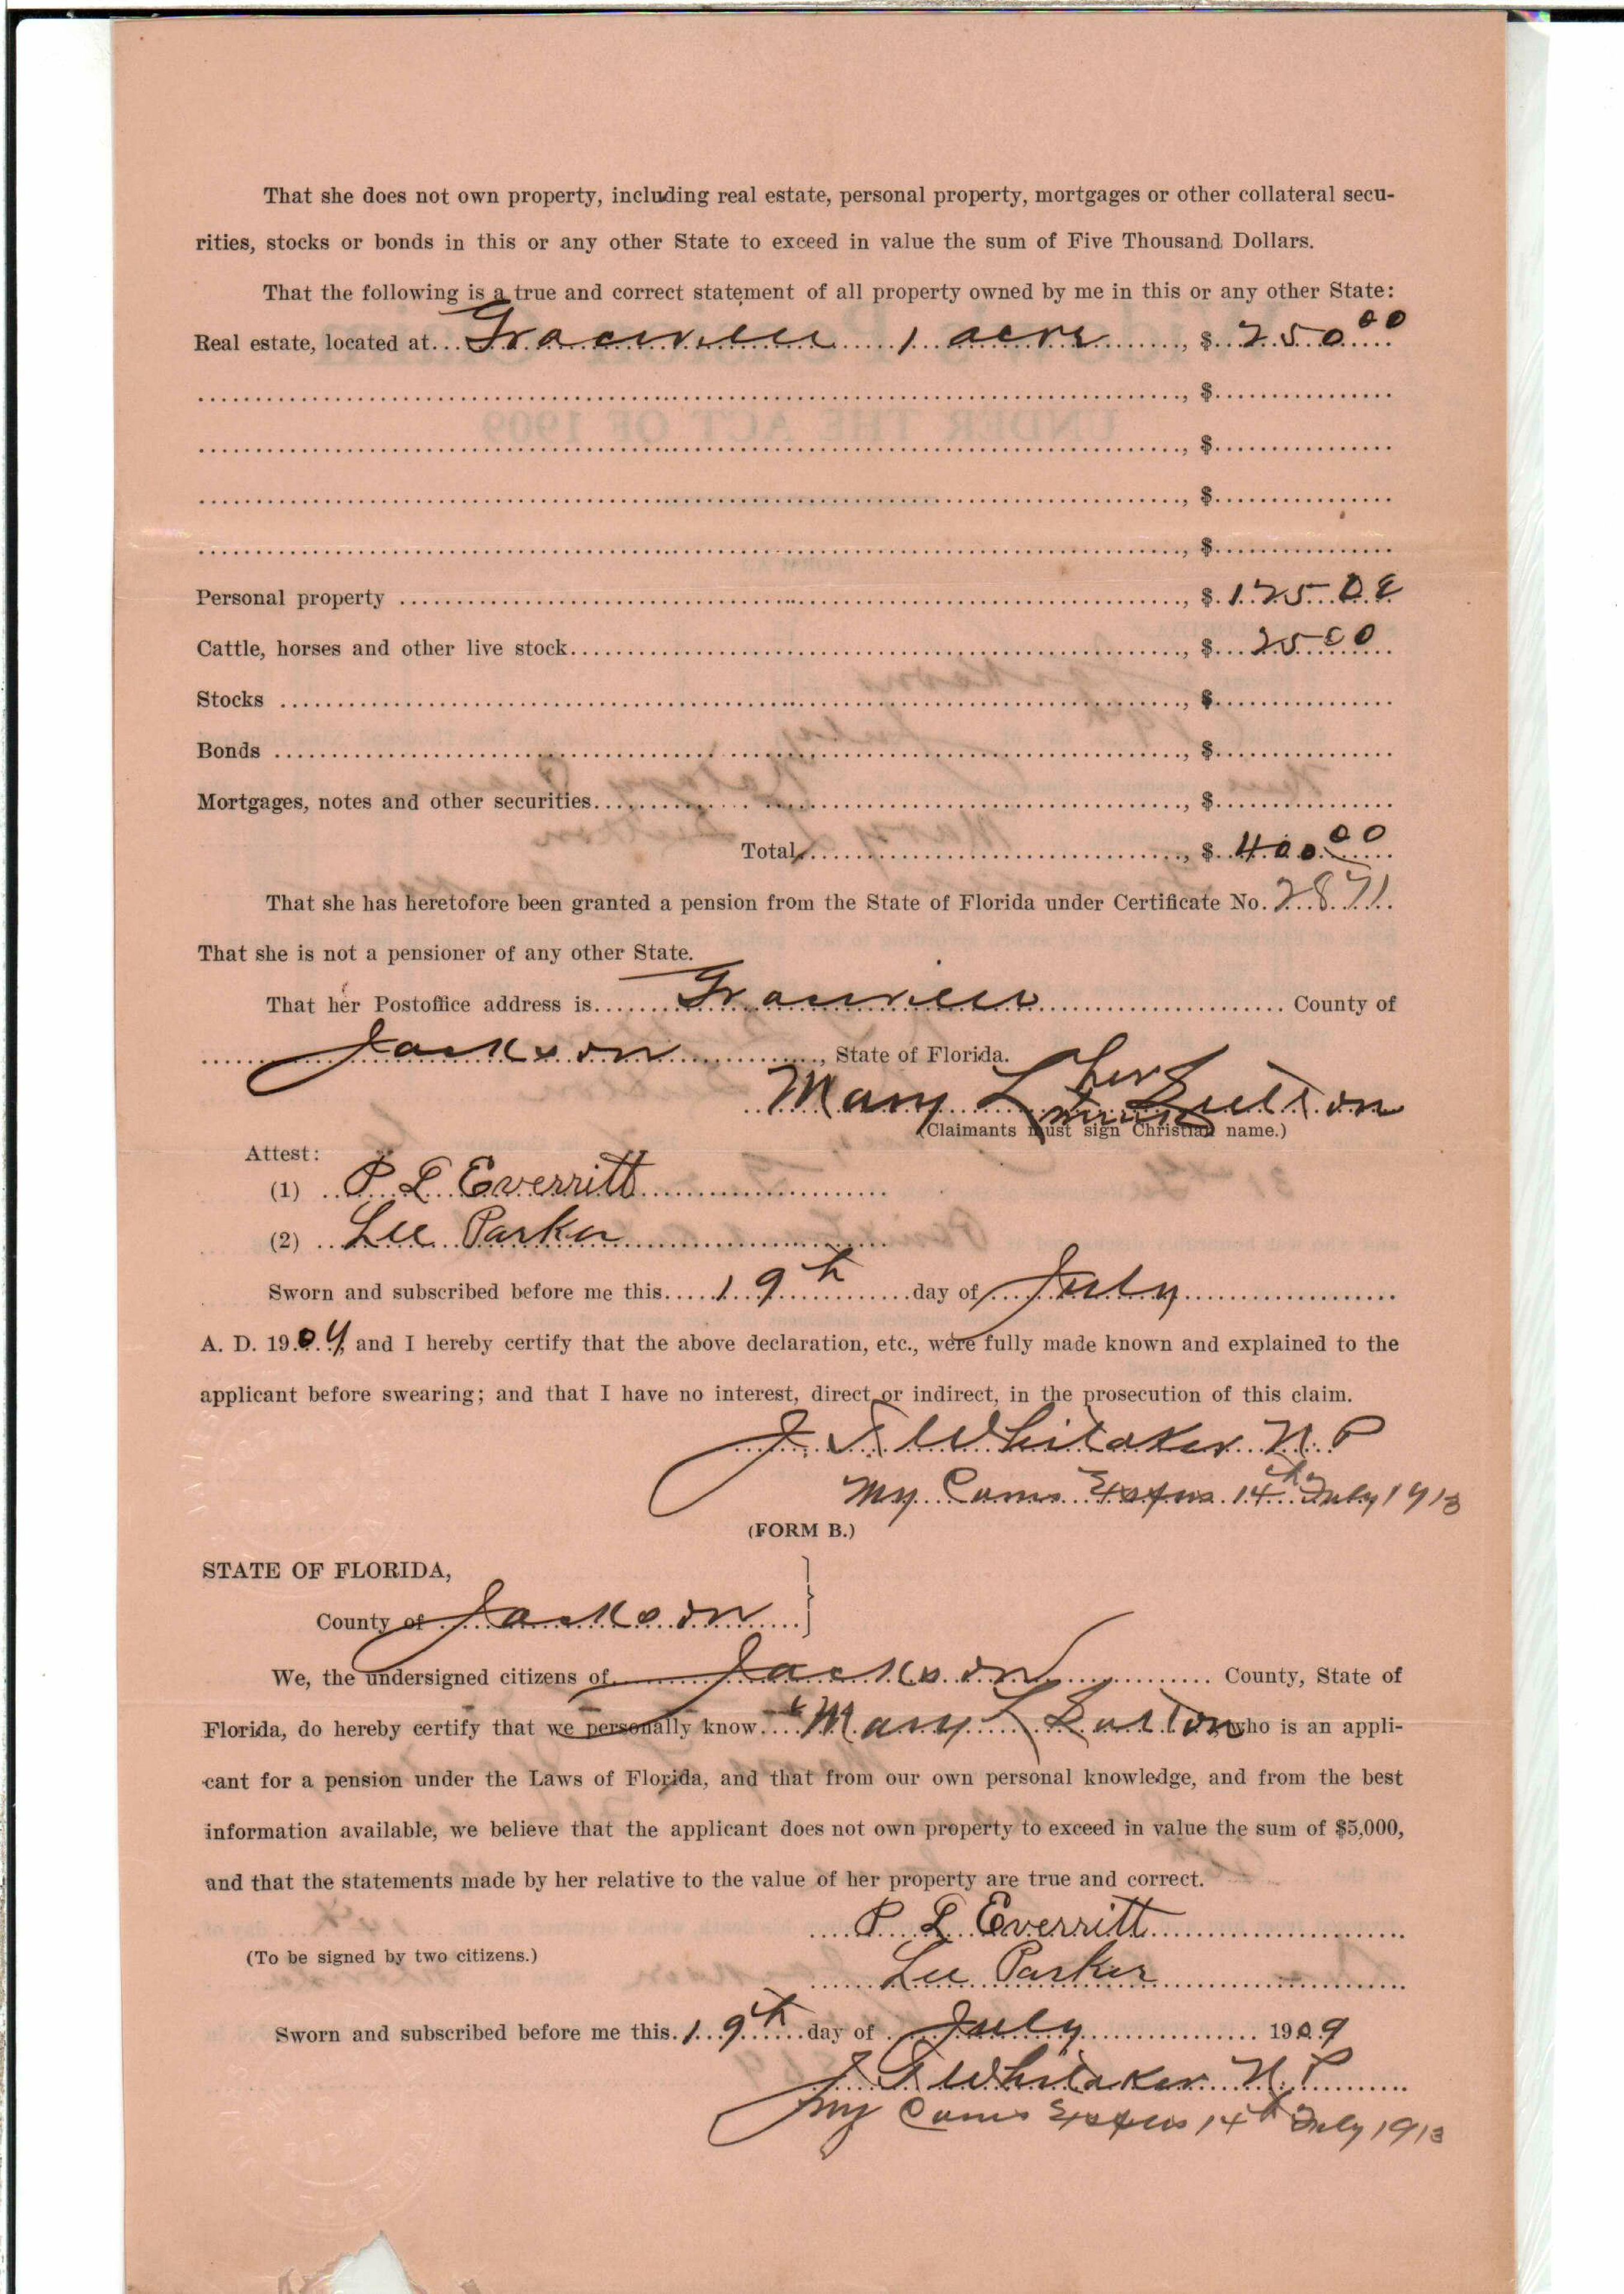 That she does not own property, including real estate, personal property, mortgages or other collateral secu-
rities, stocks or bonds in this or any other State to exceed in value the sum of Five Thousand Dollars.
That the following is a true and correct statement of all property owned by me in this or any other State:
Real estate, located at Graceville 1 acre, $ 250 00
, $
UNDER THE ACT OF 1909
, $
, $
, $
Personal property , $ 125 00
Cattle, horses and other live stock , $ 25 00
Stocks , $
Bonds , $
Mortgages, notes and other securities , $
Total , $ 400 00
That she has heretofore been granted a pension from the State of Florida under Certificate No. 2871.
That she is not a pensioner of any other State.
That her Postoffice address is Graceville County of
Jackson, State of Florida.
her
Mary L x Sutton
mark
(Claimants must sign Christian name.)
Attest:
(1) P L Everritt
(2) Lee Parker
Sworn and subscribed before me this 19th day of July
A. D. 1909, and I hereby certify that the above declaration, etc., were fully made known and explained to the
applicant before swearing; and that I have no interest, direct or indirect, in the prosecution of this claim.
Whitaker N.P
My Coms Expires 14th July 1913
(FORM B.)
STATE OF FLORIDA,
County of Jackson
We, the undersigned citizens of Jackson County, State of
Florida, do hereby certify that we personally know Mary L Sutton who is an appli-
cant for a pension under the Laws of Florida, and that from our own personal knowledge, and from the best
information available, we believe that the applicant does not own property to exceed in value the sum of $5,000,
and that the statements made by her relative to the value of her property are true and correct.
P L Everritt
(To be signed by two citizens.)
Lee Parker
Sworn and subscribed before me this 19th day of July 1909
Whitaker N.P
My Coms Expires 14th July 1913